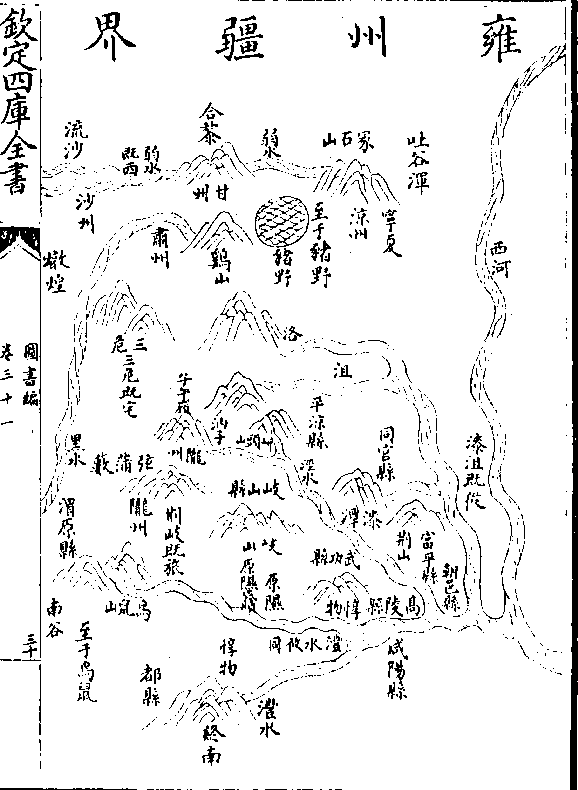 雍州疆界
吐谷渾
寧夏
西河
冡石山
涼州
至于豬野
弱水
豬野
合黎
甘州
鷄山
弱水
既西
肅州
流沙
沙州
燉煌
洛
沮
三危
三危既宅
子午嶺
汭
平涼縣
隴州
弦蒲藪
黑水
渭原縣
隴州
荆岐既旅
岐山縣
岐山
原隰
原隰底績
同官縣
漆
荆山
富平縣
朝邑縣
漆沮既從
武功縣
高陵縣
惇物
灃水攸同
咸陽縣
鳥鼠山
南谷
至于鳥鼠
鄠縣
惇物
終南
灃水
欽定四庫全書
圖書編
卷三十一
三十